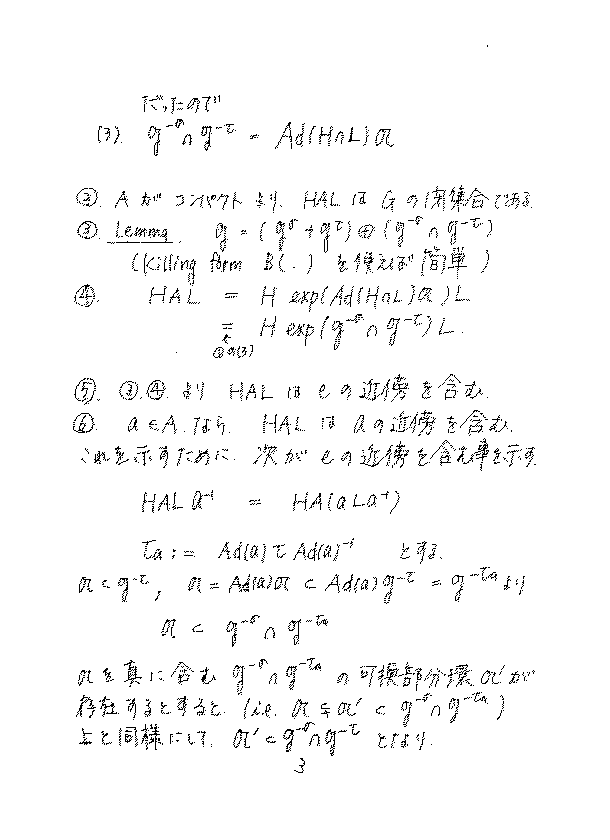 だったので
(3). 𝔤^{-σ}∩𝔤^{-τ} = Ad(H∩L)𝔞
②. A が コンパクト より, HAL は G の閉集合である.
③. Lemma. 𝔤 = (𝔤^σ + 𝔤^τ) ⊕ (𝔤^{-σ} ∩ 𝔤^{-τ})
(Killing form B( , ) を使えば簡単)
④. HAL = H exp(Ad(H∩L)𝔞)L
= H exp(𝔤^{-σ} ∩ 𝔤^{-τ})L.
①の(3)
⑤. ③,④ より HAL は e の近傍を含む.
⑥. a ∈ A なら HAL は a の近傍を含む.
これを示すために, 次が e の近傍を含む事を示す.
HAL a^{-1} = HA(aLa^{-1})
τ_a := Ad(a) τ Ad(a)^{-1} とする.
𝔞 ⊂ 𝔤^{-τ}, 𝔞 = Ad(a)𝔞 ⊂ Ad(a)𝔤^{-τ} = 𝔤^{-τ_a} より
𝔞 ⊂ 𝔤^{-σ} ∩ 𝔤^{-τ_a}
𝔞を真に含む 𝔤^{-σ}∩𝔤^{-τ_a} の可換部分環 𝔞' が
存在するとすると (i.e. 𝔞 ⊊ 𝔞' ⊂ 𝔤^{-σ} ∩ 𝔤^{-τ_a})
上と同様にして, 𝔞' ⊂ 𝔤^{-σ}∩𝔤^{-τ} となり.
3